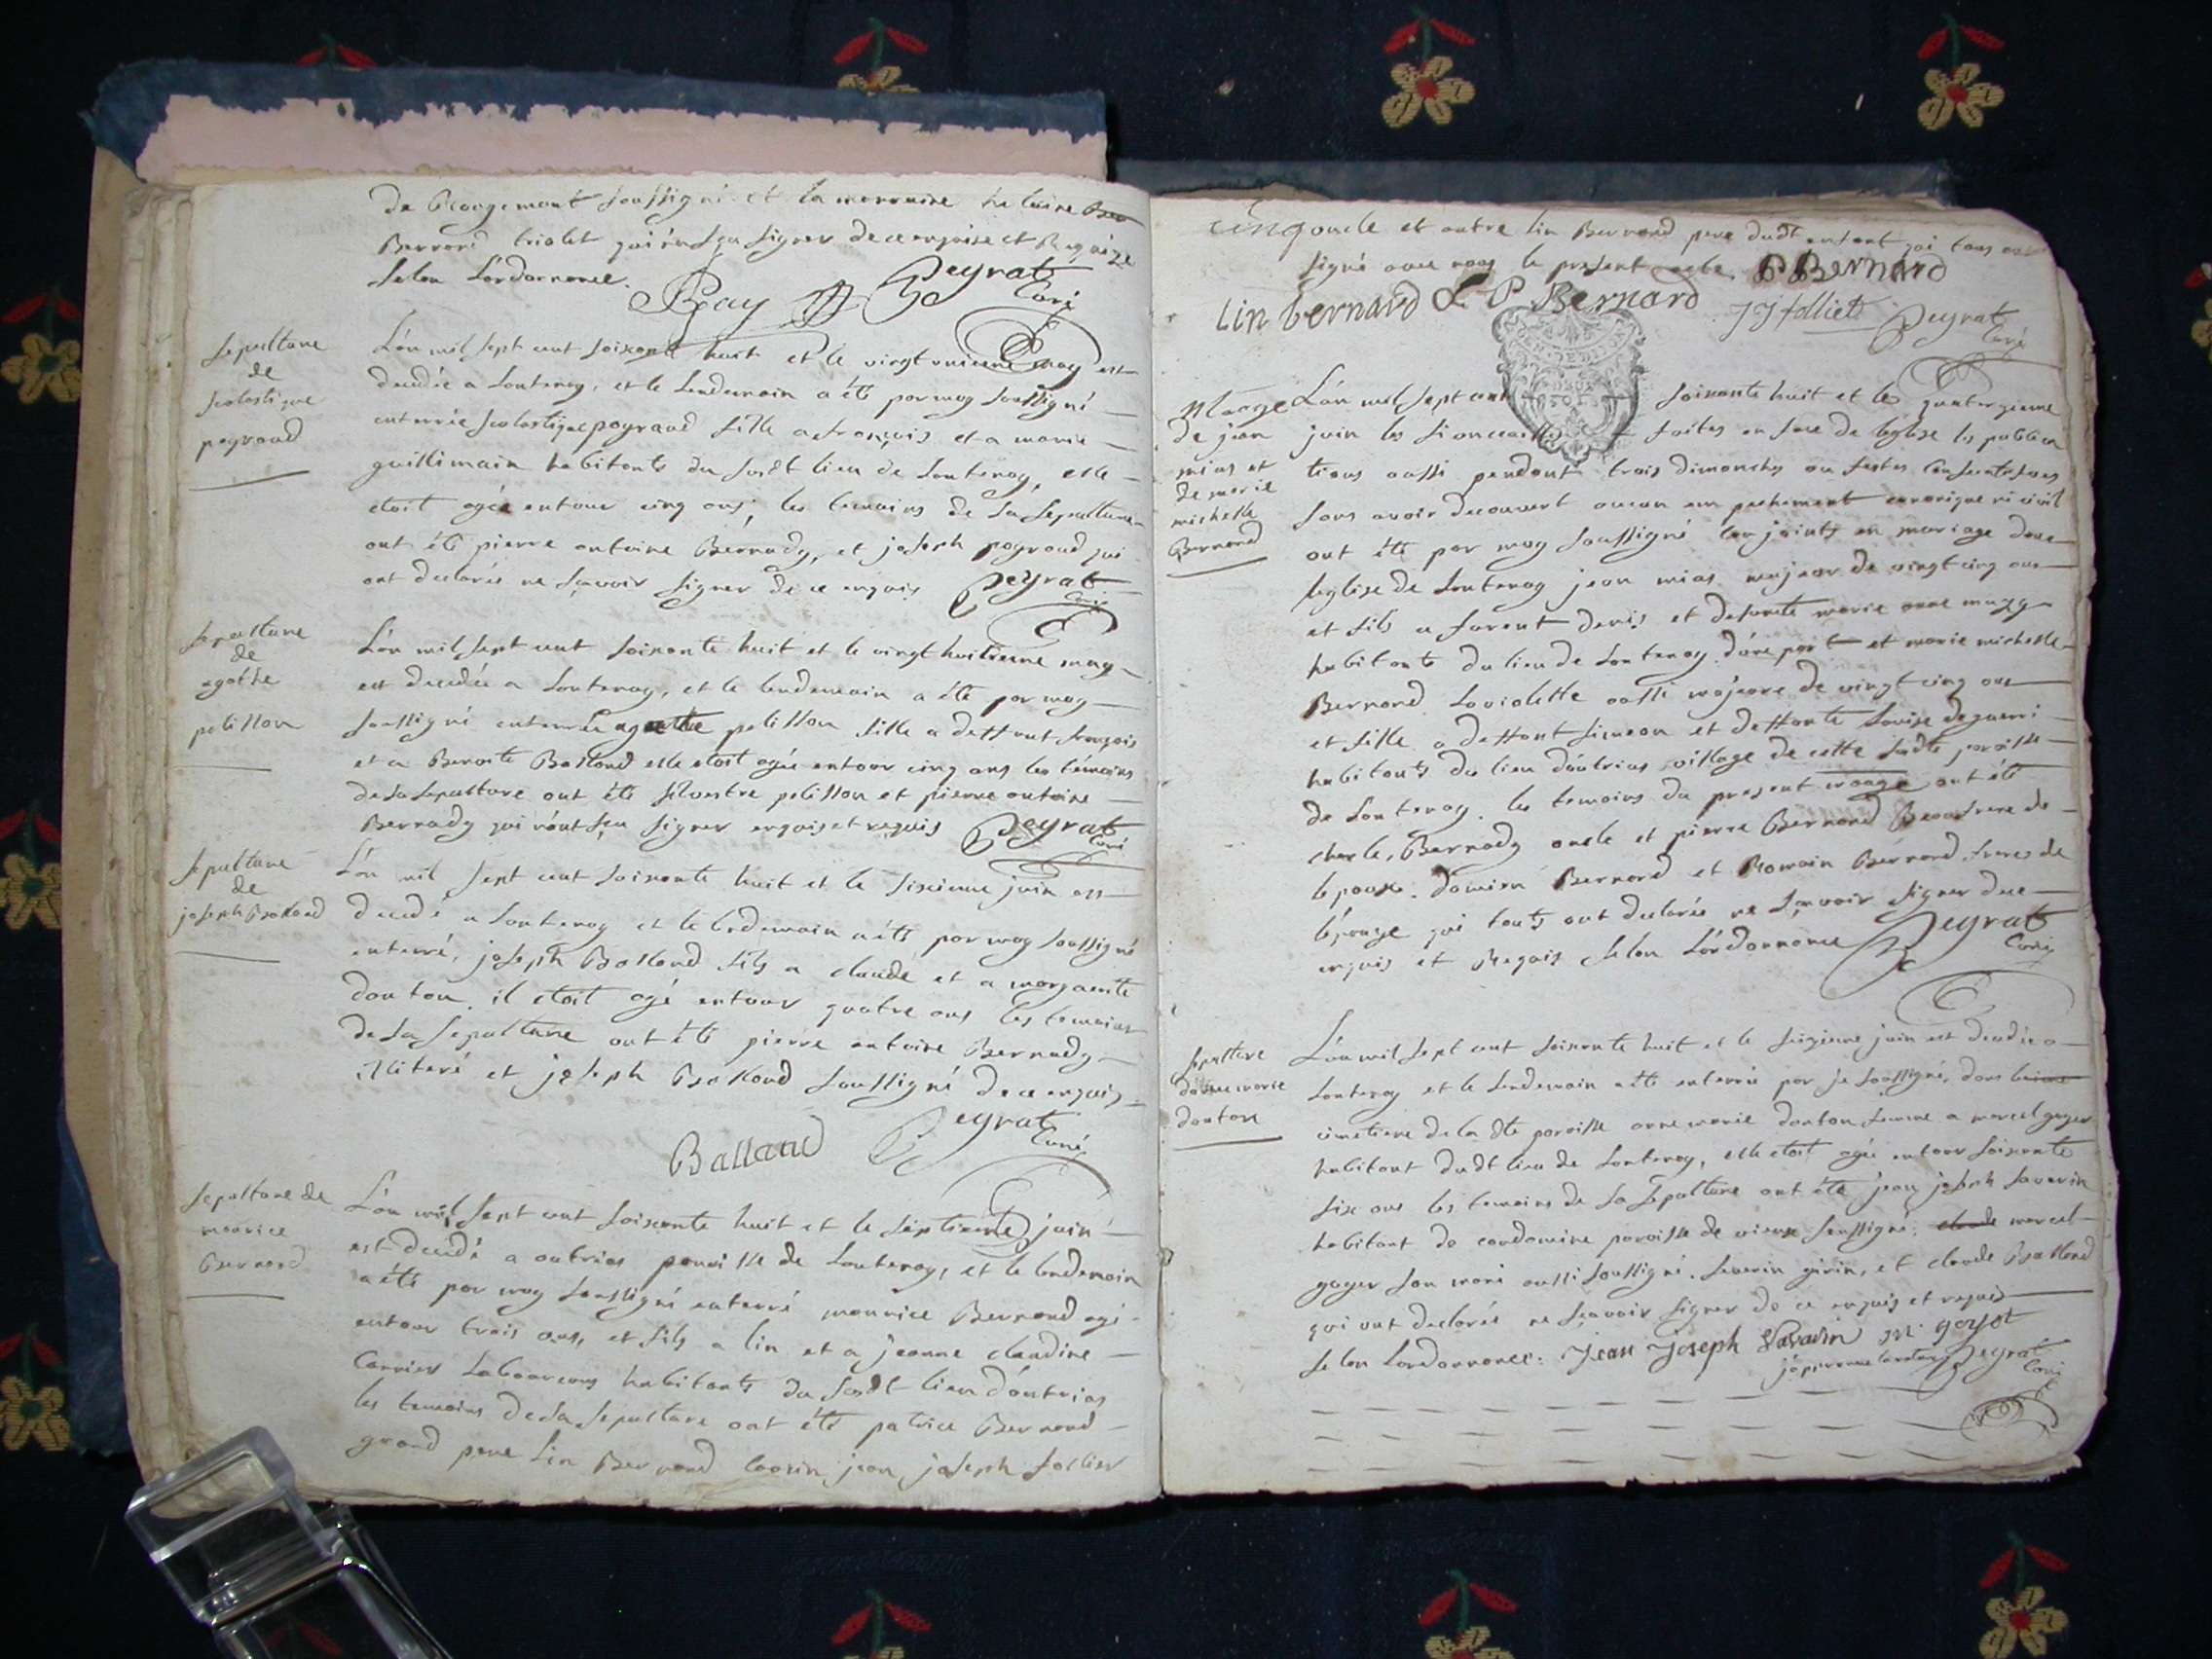 de Rougemont soussigné et la marraine
Bernard triolet qui n'a sçu signer de ce enquise et Requise
selon Lordonnance.
Ray Peyrat
Curé
Sepulture
de
scolastique
peyraud
L'an mil sept cent soixante huit et le vingt unieme may est
decedée a Lontenay, et le lendemain a été par moy soussigné
enterrée scolastique poyraud fille a françois et a marie
guillimain habitants du susdt lieu de Lontenay, elle
etoit agée entour cinq ans, les temoins de sa sepulture
ont été pierre antoine Bernady, et joseph poyraud qui
ont declarés ne sçavoir signer de ce enquis Peyrat
Curé
sepulture
de
agathe
pelisson
L'an mil sept cent soixante huit et le vingt huitieme may
est decedée a Lontenay, et le lendemain a été par moy
soussigné enterrée agathe pelisson fille a deffunt françois
et a Benoite Balland elle etoit agée entour cinq ans les témoins
de sa sepulture ont été silvestre pelisson et pierre antoine
Bernady qui n'ont sçu signer enquis et requis Peyrat
Curé
sepulture
de
joseph Balland
L'an mil sept cent soixante huit et le sixieme juin est
decedé a Lontenay et le lendemain a été par moy soussigné
enterré, joseph Balland fils a claude et a margueritte
douton. il etoit agé entour quatre ans les temoins
de sa sepulture ont été pierre antoine Bernady
illiteré et joseph Balland soussigné de ce enquis
Peyrat
Balland Curé
sepulture de
maurice
Bernard
L'an mil sept cent soixante huit et le septieme juin
est decedé a outrias paroisse de Lontenay, et le lendemain
a été par moy soussigné enterré maurice Bernard agé
entour trois ans, et fils a lin et a jeanne claudine
Carrier Laboureurs habitants du susdt lieu d'outrias
les temoins de sa sepulture ont été patrice Bernard
grand pere Lin Bernard Cousin jean joseph folliet
oncle et outre lin Bernard pere dudt enfant qui tous ont
signé avec nous le present acte. P Bernard
Lin bernard L P Bernard JJ folliet Peyrat
Curé
Mariage
de jean
mias et
de marie
michelle
Bernard
L'an mil sept cent soixante huit et le quatorzieme
juin les fiancailles faites en face de leglise les publica
tions aussi pendant trois dimanches ou festes Consecutives
sans avoir decouvert aucun empechement canonique ni civil
ont été par moy soussigné Conjoints en mariage dans
leglise de Lontenay jean mias majeur de vingt cinq ans
et fils a furent denis et defunte marie anne
habitants du lieu de Lontenay d'une part et marie michelle
Bernard Laviolette aussi majeure de vingt cinq ans
et fille a deffunt simeon et deffunte Louise
habitants du lieu d'outrias village de cette susdte paroisse
de Lontenay. les temoins du present mariage ont été
charle, Bernady oncle et pierre Bernard Beaufrere de
lepoux. damien Bernard et Romain Bernard freres de
l'épouse qui touts ont declarés ne sçavoir signer de ce
enquis et Requis selon L'ordonnance Peyrat
Curé
sepulture
d'anne marie
douton
L'an mil sept cent soixante huit et le seizieme juin est decedée a
Lontenay et le lendemain a été enterrée par je soussigné, dans
cimetiere de la dte paroisse anne marie douton femme a marcel goyer
habitant dudt lieu de Lontenay, elle etoit agée entour soixante
six ans les temoins de sa sepulture ont été jean joseph savarin
habitant de condamine paroisse de vieux soussigné. claude marcel
goyer son mari aussi soussigné. severin girin, et claude Balland
qui ont declarés ne sçavoir signer de ce enquis et requis
selon Lordonnance. Jean Joseph Savarin M. goyet
Peyrat
Curé